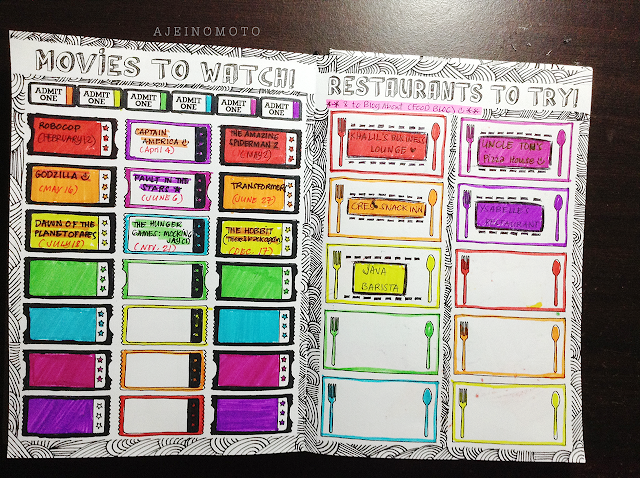 AJEINOMOTO
MOVIES TO WATCH!
ADMIT ONE ADMIT ONE ADMIT ONE ADMIT ONE ADMIT ONE ADMIT ONE
ROBOCOP
(FEBRUARY 12)
CAPTAIN
AMERICA
(April 4)
THE AMAZING
SPIDERMAN 2
(MAY 2)
GODZILLA
(MAY 16)
FAULT IN THE
STARS
(JUNE 6)
TRANSFORMERS
(JUNE 27)
DAWN OF THE
PLANET OF APES
(JULY 18)
THE HUNGER
GAMES: MOCKING
JAY
(NOV. 21)
THE HOBBIT
(DEC. 17)
RESTAURANTS TO TRY!
to Blog About (FOOD BLOG)
KHALIL'S BUSINESS
LOUNGE
UNCLE TOM'S
Pizza House
CRES SNACK INN
YSABELLE'S
RESTAURANT
JAVA
BARISTA